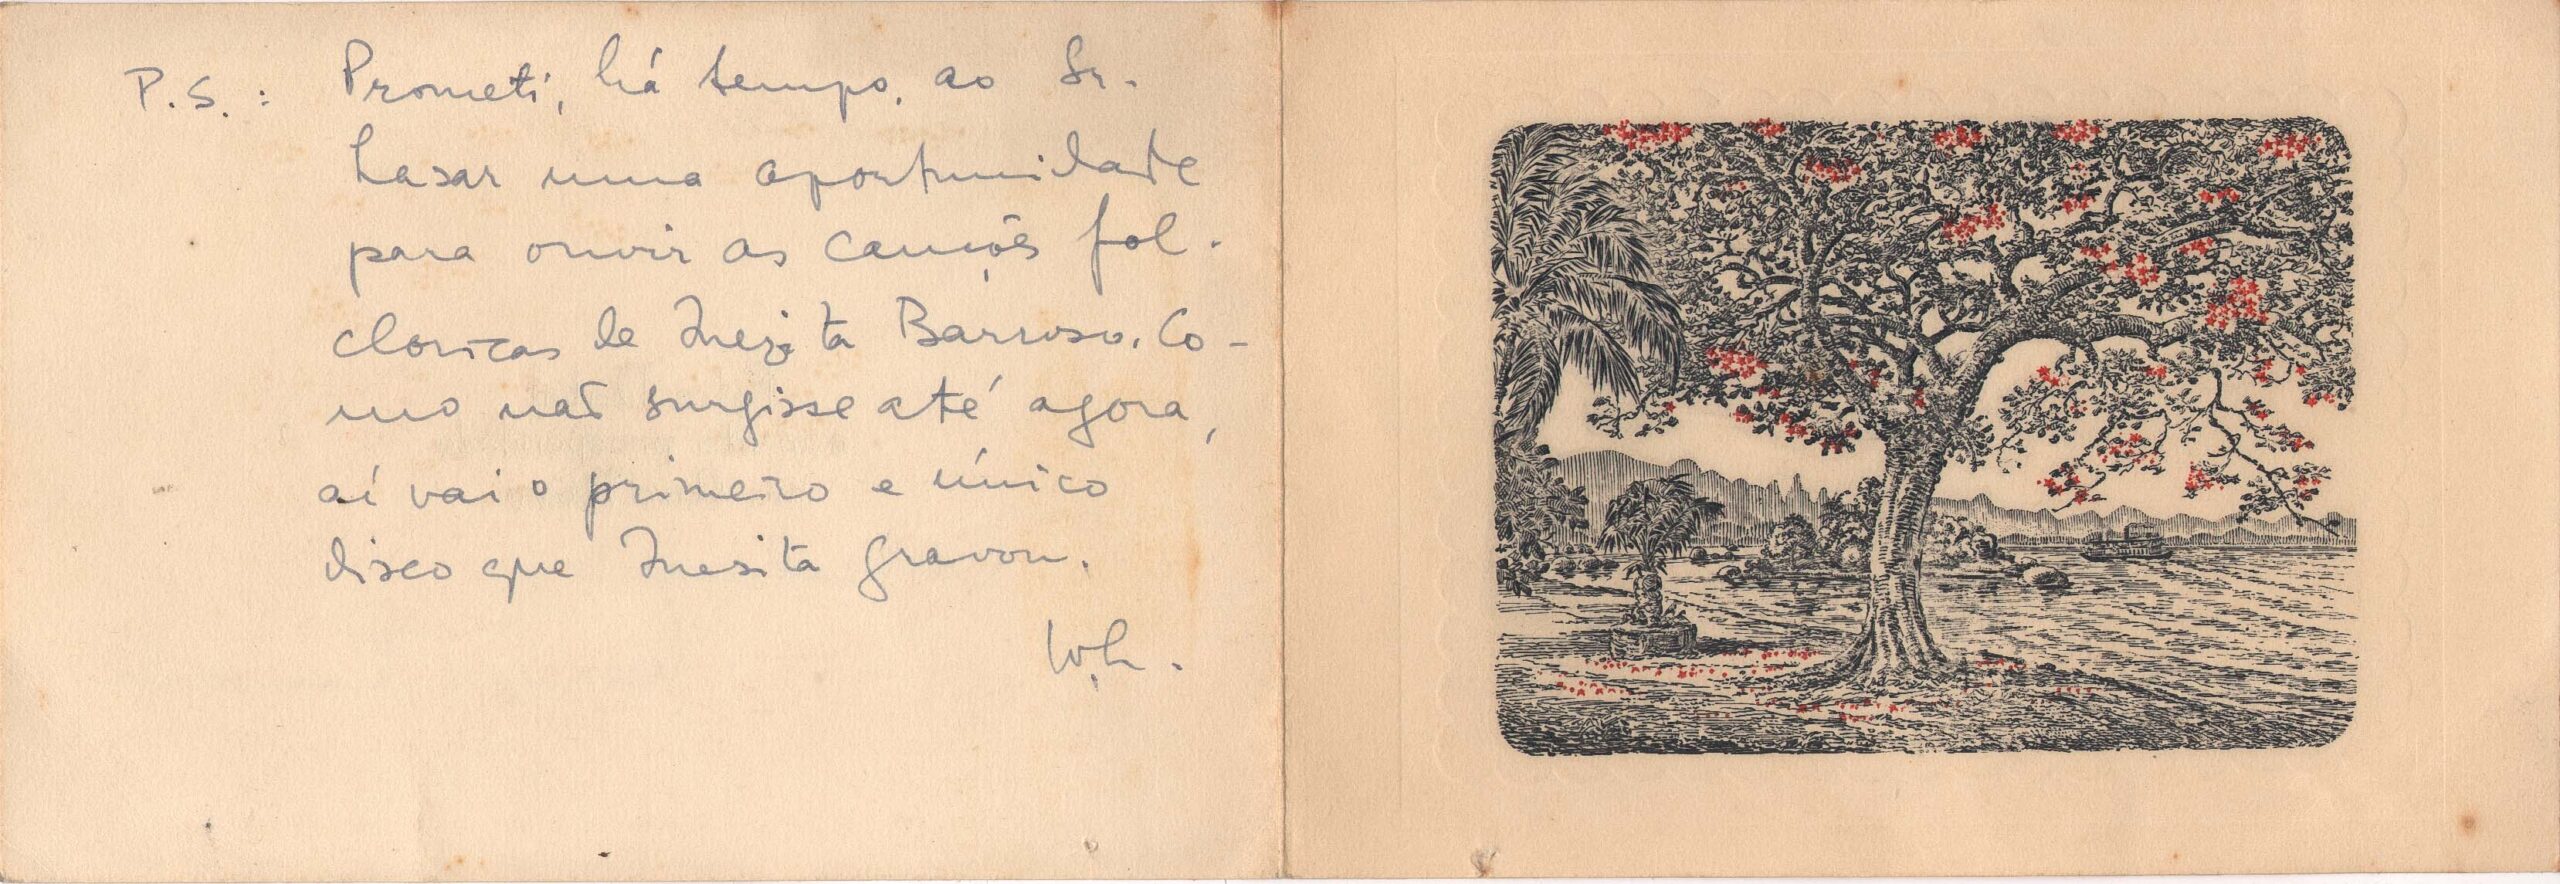 P.S.: Prometi, há tempo, ao Sr.
Lasar uma oportunidade
para ouvir as canções fol-
cloricas de Inezita Barroso. Co-
mo não surgisse até agora,
aí vai o primeiro e único
disco que Inesita gravou.